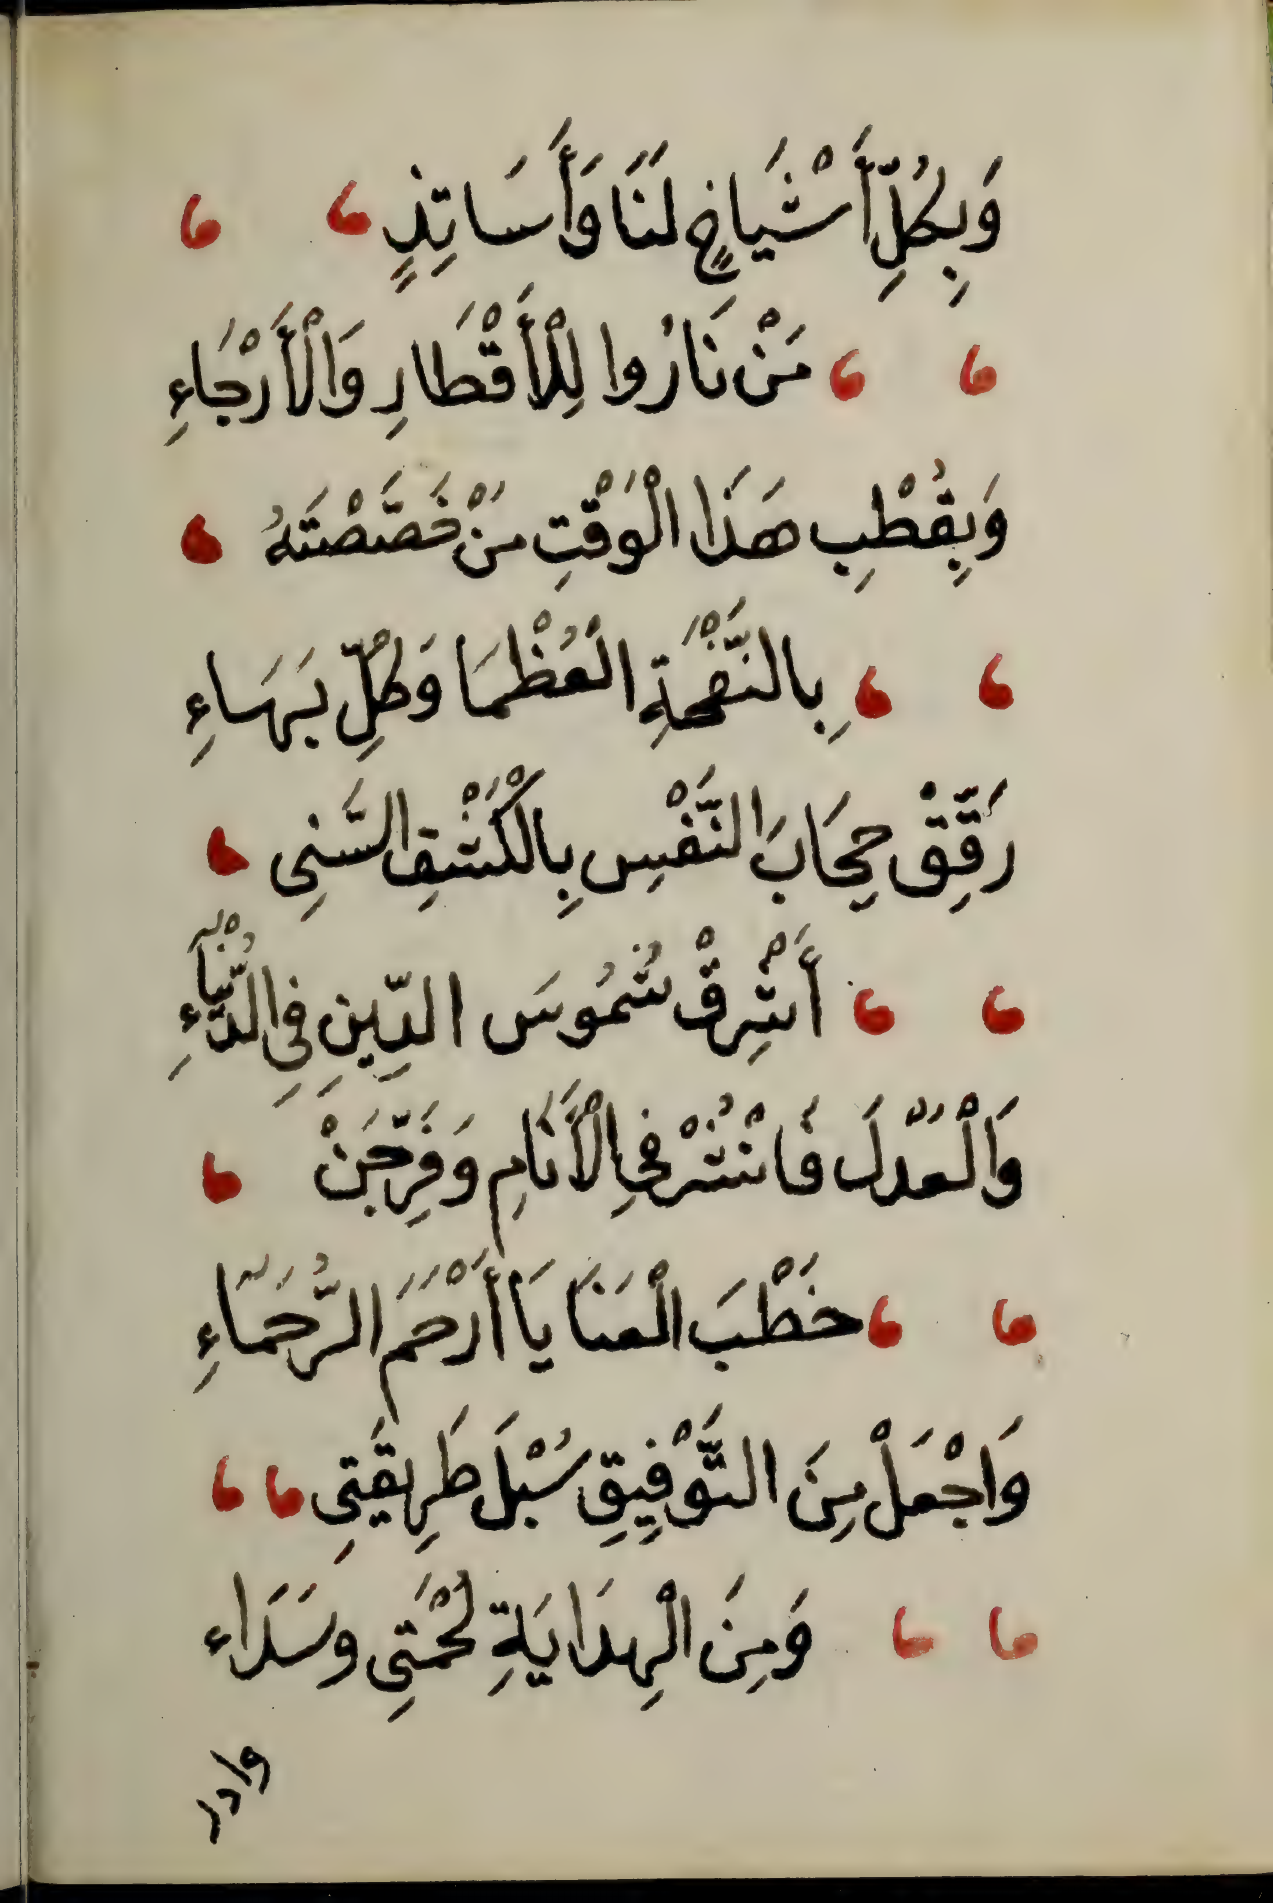 وَبِكُلِّ أَشْيَاخٍ لَنَا وَأَسَاتِذٍ
مَنْ نَارُوا لِلْأَقْطَارِ وَالْأَرْجَاءِ
وَبِقُطْبِ هَذَا الْوَقْتِ مَنْ خَصَّصْتَهُ
بِالنَّفْحَةِ الْعُظْمَا وَكُلِّ بَهَاءِ
رَقِّقْ حِجَابَ النَّفْسِ بِالْكَشْفِ السَّنِى
أَشْرِقْ شُمُوسَ الدِّينِ فِى الدُّنْيَآءِ
وَالْعَدْلَ فَانْشُرْ فِى الْأَنَامِ وَفَرِّجَنْ
خَطْبَ الْعَنَا يَا أَرْحَمَ الرُّحَمَآءِ
وَاجْعَلْ مِنَ التَّوْفِيقِ سُبْلَ طَرِيقَتِى
وَمِنَ الْهِدَايَةِ لُحْمَتِى وسَدَاء
وادر